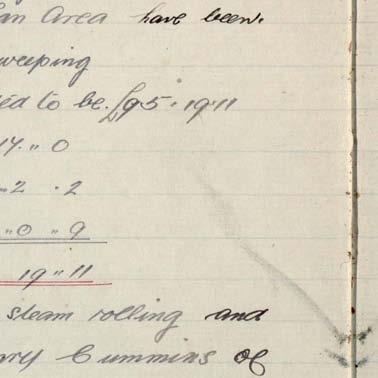 an Area have been.
weeping
ed to be. £95 " 19 " 11
14. " 0
" 2 . 2
" 0 " 9
19 " 11
steam rolling and
Cummins of